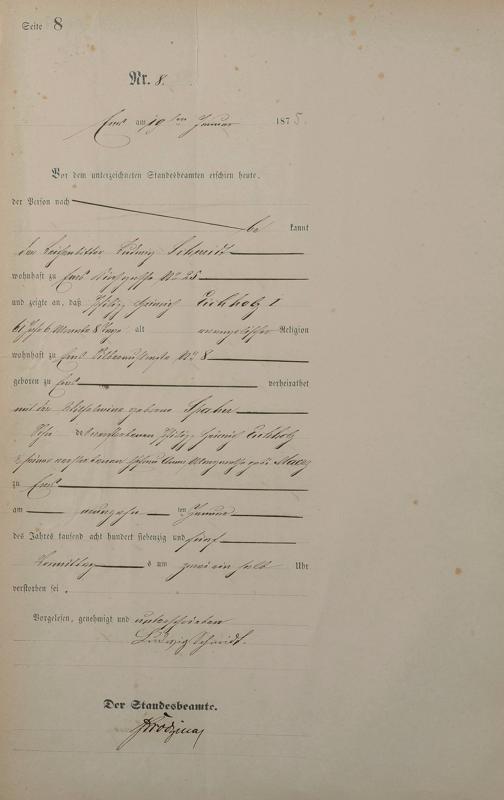 Seite 8
Nr. 8.
Ems am 19ten Januar 1875.
Vor dem unterzeichneten Standesbeamten erschien heute,
der Person nach
be kannt
der Leichenbitter Ludwig Schmidt
wohnhaft zu Ems No 25
und zeigte an, daß Philipp Heinrich Eichholz I
61 Jahr 6 Monate 8 Tage alt evangelischer Religion
wohnhaft zu Ems No 8
geboren zu Ems verheirathet
mit der Wilhelmine geborne
Sohn des verstorbenen Philipp Heinrich Eichholz
seiner verstorbenen Ehefrau Anna Margaretha geb.
zu Ems
am neunzehn ten Januar
des Jahres tausend acht hundert siebenzig und fünf
Vormittag s um zwei ein halb Uhr
verstorben sei.
Vorgelesen, genehmigt und unterschrieben
Ludwig Schmidt.
Der Standesbeamte.